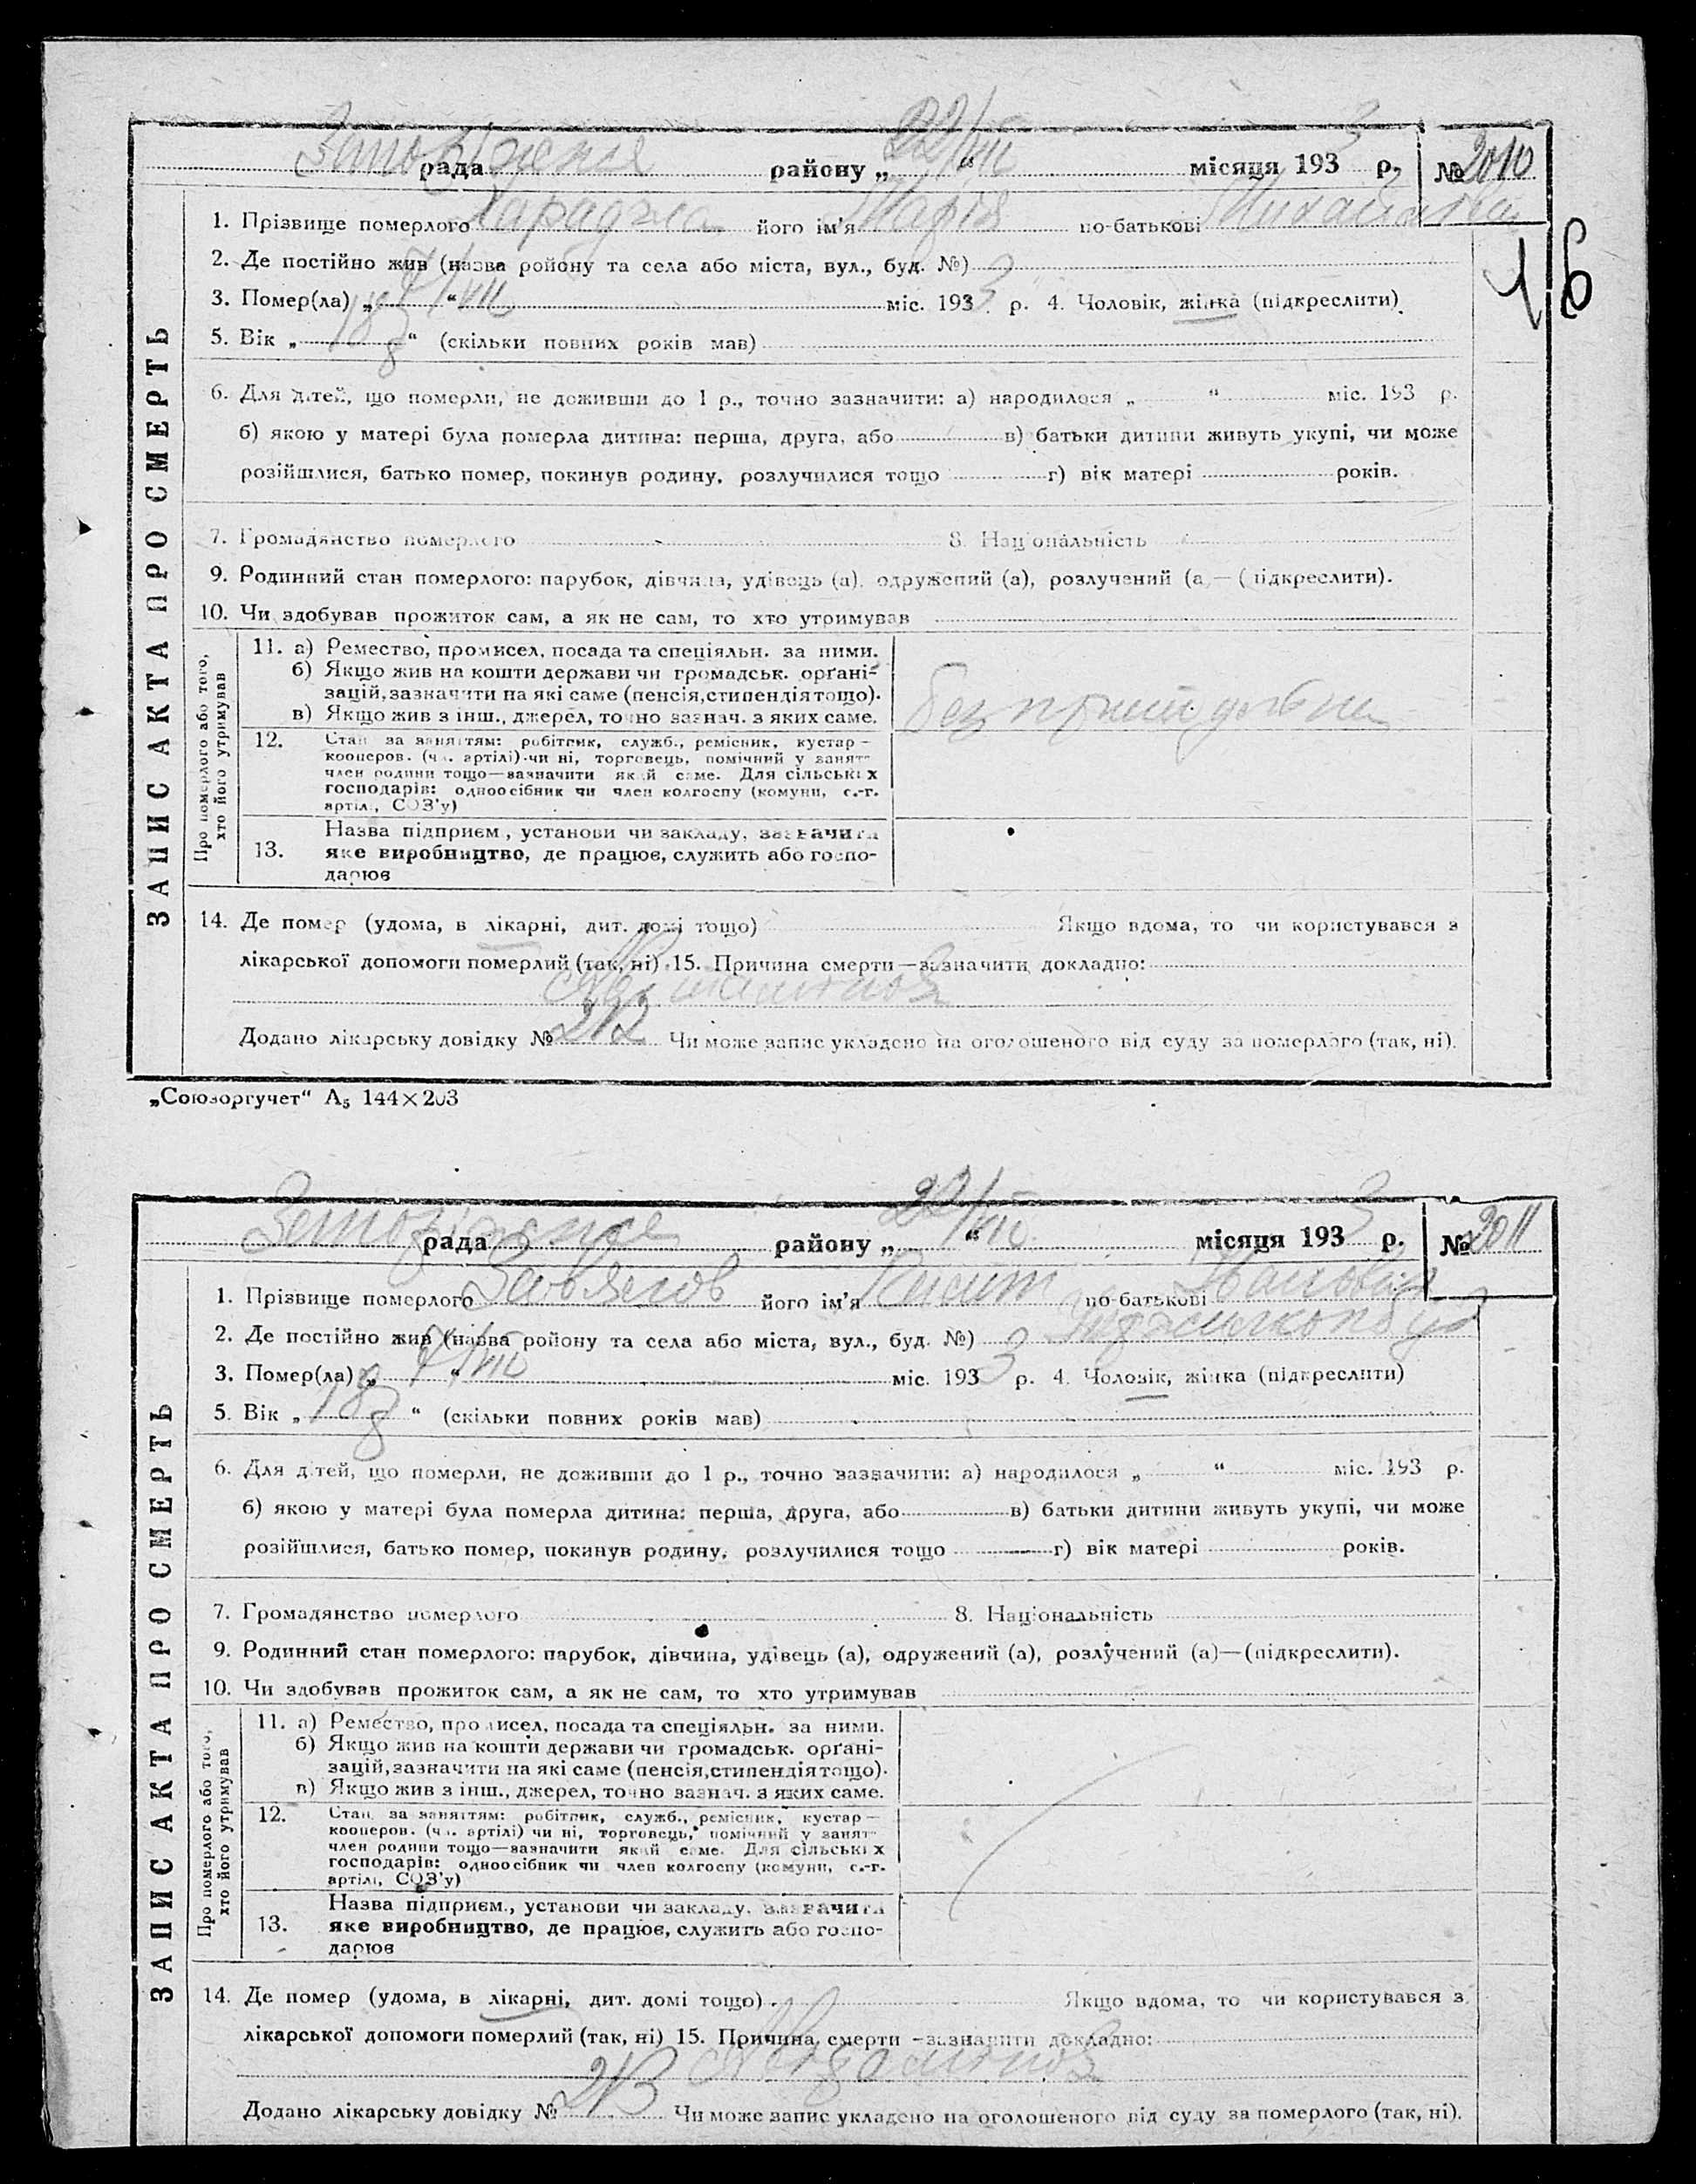 рада району „22/VII“ місяця 1933 р. № 2010
1. Прізвище померлого його ім'я Марія по-батькові
2. Де постійно жив (назва ройону та села або міста, вул., буд. №)
3. Помер(ла) „ “ міс. 1933 р. 4. Чоловік, жінка (підкреслити)
16
5. Вік „ “ (скільки повних років мав)
6. Для дітей, що померли, не доживши до 1 р., точно зазначити: а) народилося „ “ міс. 193 р.
б) якою у матері була померла дитина: перша, друга, або в) батьки дитини живуть укупі, чи може
розійшлися, батько помер, покинув родину, розлучилися тощо г) вік матері років.
7. Громадянство померлого 8. Національність
9. Родинний стан померлого: парубок, дівчина, удівець (а), одружений (а), розлучений (а — (підкреслити).
10. Чи здобував прожиток сам, а як не сам, то хто утримував
Про померлого або того, хто його утримував
11. а) Ремество, промисел, посада та спеціяльн. за ними.
б) Якщо жив на кошти держави чи громадськ. орґані-
зацій, зазначити на які саме (пенсія, стипендія тощо).
в) Якщо жив з інш., джерел, точно зазнач. з яких саме.
12. Стан за заняттям: робітник, служб., ремісник, кустар—
кооперов. (чл. артілі) чи ні, торговець, помічний у занят-
член родини тощо—зазначити який саме. Для сільських
господарів: одноосібник чи член колгоспу (комуни, с.-г.
артілі, СОЗ'у)
13. Назва підприєм., установи чи закладу, зазначити
яке виробництво, де працює, служить або госпо-
дарює
14. Де помер (удома, в лікарні, дит. домі тощо) Якщо вдома, то чи користувався з
лікарської допомоги померлий (так, ні) 15. Причина смерти—зазначити докладно:
Додано лікарську довідку № 212 Чи може запис укладено на оголошеного від суду за померлого (так, ні).
ЗАПИС АКТА ПРО СМЕРТЬ
„Союзоргучет“ А5 144×203
рада району „22/VII“ місяця 1933 р. № 2011
1. Прізвище померлого його ім'я по-батькові Іванович
2. Де постійно жив (назва ройону та села або міста, вул., буд. №)
3. Помер(ла) „ “ міс. 1933 р. 4. Чоловік, жінка (підкреслити)
5. Вік „ “ (скільки повних років мав)
6. Для дітей, що померли, не доживши до 1 р., точно зазначити: а) народилося „ “ міс. 193 р.
б) якою у матері була померла дитина: перша, друга, або в) батьки дитини живуть укупі, чи може
розійшлися, батько помер, покинув родину, розлучилися тощо г) вік матері років.
7. Громадянство померлого 8. Національність
9. Родинний стан померлого: парубок, дівчина, удівець (а), одружений (а), розлучений (а)—(підкреслити).
10. Чи здобував прожиток сам, а як не сам, то хто утримував
Про померлого або того, хто його утримував
11. а) Ремество, промисел, посада та спеціяльн. за ними.
б) Якщо жив на кошти держави чи громадськ. орґані-
зацій, зазначити на які саме (пенсія, стипендія тощо).
в) Якщо жив з інш., джерел, точно зазнач. з яких саме.
12. Стан за заняттям: робітник, служб., ремісник, кустар—
кооперов. (чл. артілі) чи ні, торговець, помічний у занят-
член родини тощо—зазначити який саме. Для сільських
господарів: одноосібник чи член колгоспу (комуни, с.-г.
артілі, СОЗ'у)
13. Назва підприєм., установи чи закладу, зазначити
яке виробництво, де працює, служить або госпо-
дарює
14. Де помер (удома, в лікарні, дит. домі тощо) Якщо вдома, то чи користувався з
лікарської допомоги померлий (так, ні) 15. Причина смерти—зазначити докладно:
Додано лікарську довідку № 213 Чи може запис укладено на оголошеного від суду за померлого (так, ні).
ЗАПИС АКТА ПРО СМЕРТЬ